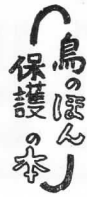 鳥のほん
保護の本